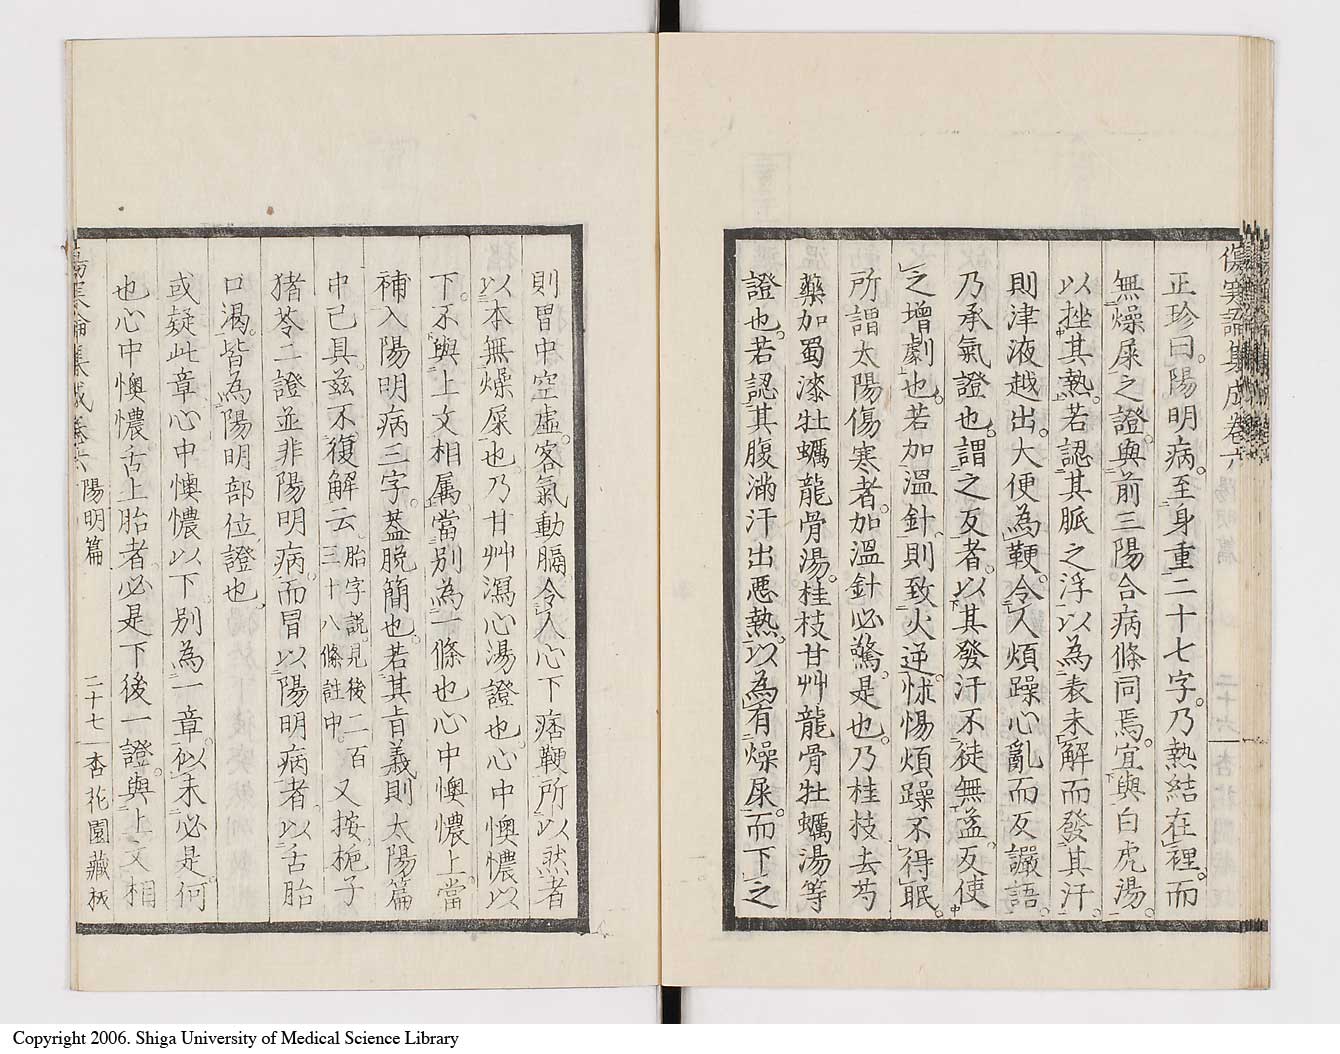 傷寒論集成卷六
正珍曰。陽明病。至身重二十七字。乃熱結在裡。而
無燥屎之證。與前三陽合病條同焉。宜與白虎湯
以挫其熱。若認其脈之浮。以為表未解而發其汗
則津液越出。大便為鞕。令人煩躁心亂而反讝語。
乃承氣證也。謂之反者。以其發汗不徒無益。反使
之增劇也。若加溫針。則致火逆。怵惕煩躁不得眠。
所謂太陽傷寒者。加溫針必驚。是也。乃桂枝去芍
藥加蜀漆牡蠣龍骨湯。桂枝甘艸龍骨牡蠣湯等
證也。若認其腹滿汗出惡熱。以為有燥屎。而下之
則胃中空虛。客氣動膈。令人心下痞鞕。所以然者
以本無燥屎也。乃甘艸瀉心湯證也。心中懊憹以
下。不與上文相屬。當別為一條也。心中懊憹上。當
補入陽明病三字。蓋脫簡也。若其旨義則太陽篇
中已具。茲不復解云。胎字說。見後二百三十八條註中。又按。梔子
猪苓二證並非陽明病。而冒以陽明病者。以舌胎
口渴。皆為陽明部位證也。
或疑此章心中懊憹以下。別為一章。似未必是。何
也。心中懊憹。舌上胎者。必是下後一證。與上文相
傷寒論集成卷六 陽明篇 二十七 杏花園藏板